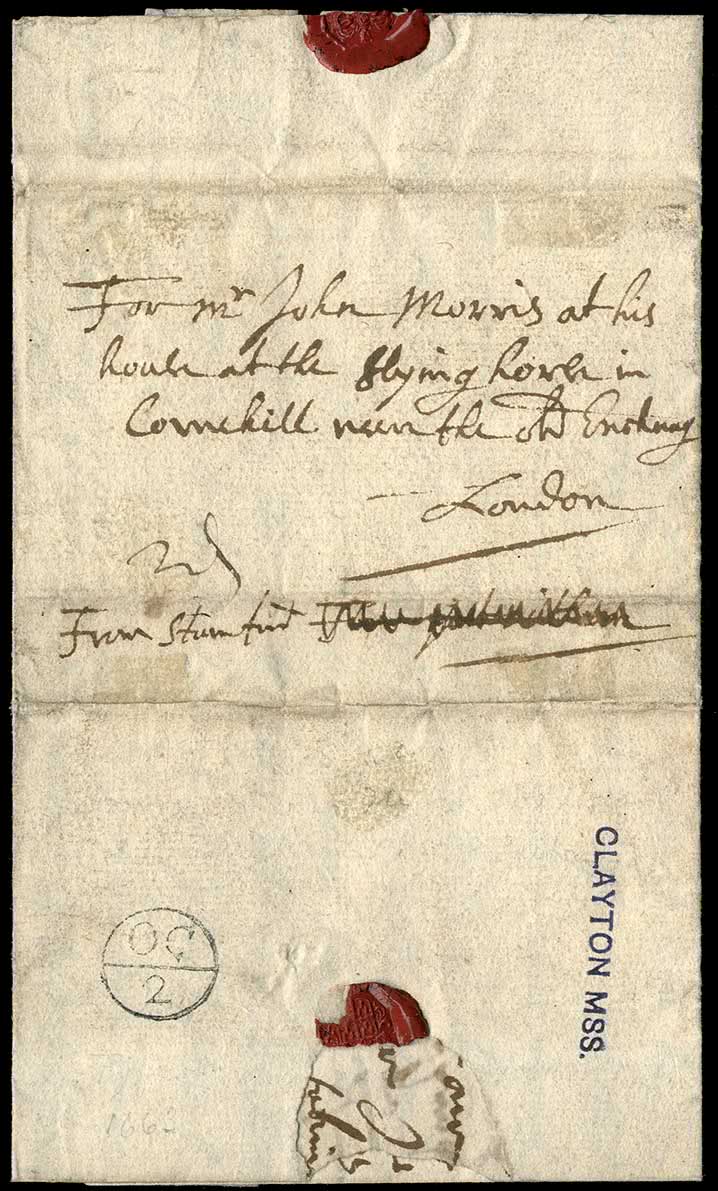 For Mr John Morris at his
house at the flying horse in
Cornehill neer the old Exchang
London
From Stamford
CLAYTON MSS.
OC
2
1662